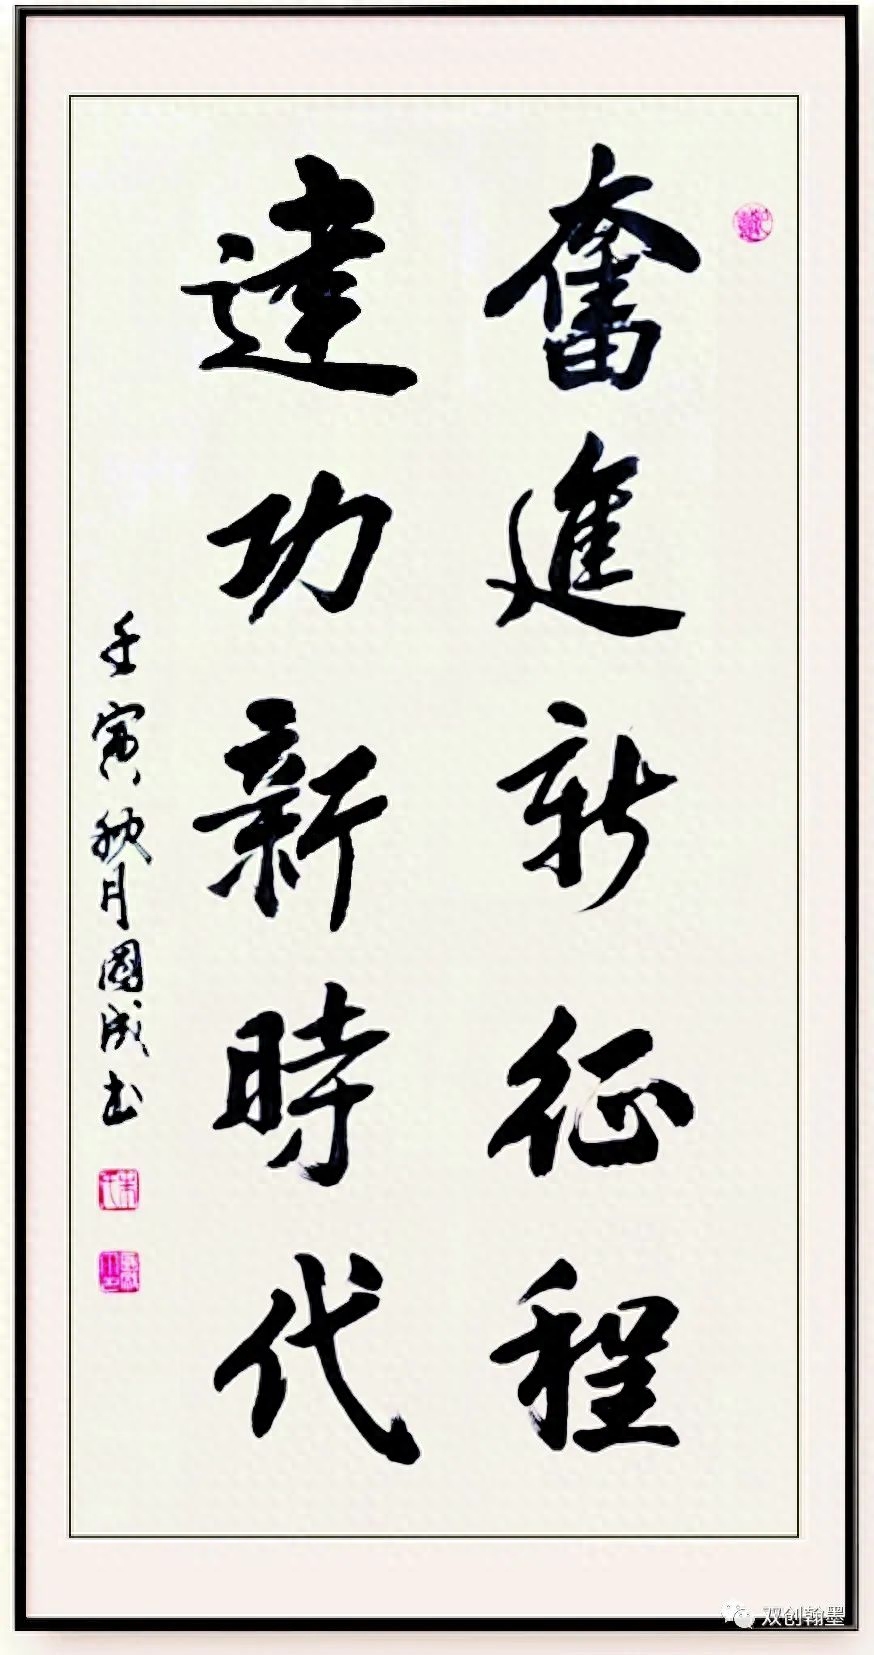 奮進新征程
建功新時代
壬寅秋月國成书
双创翰墨